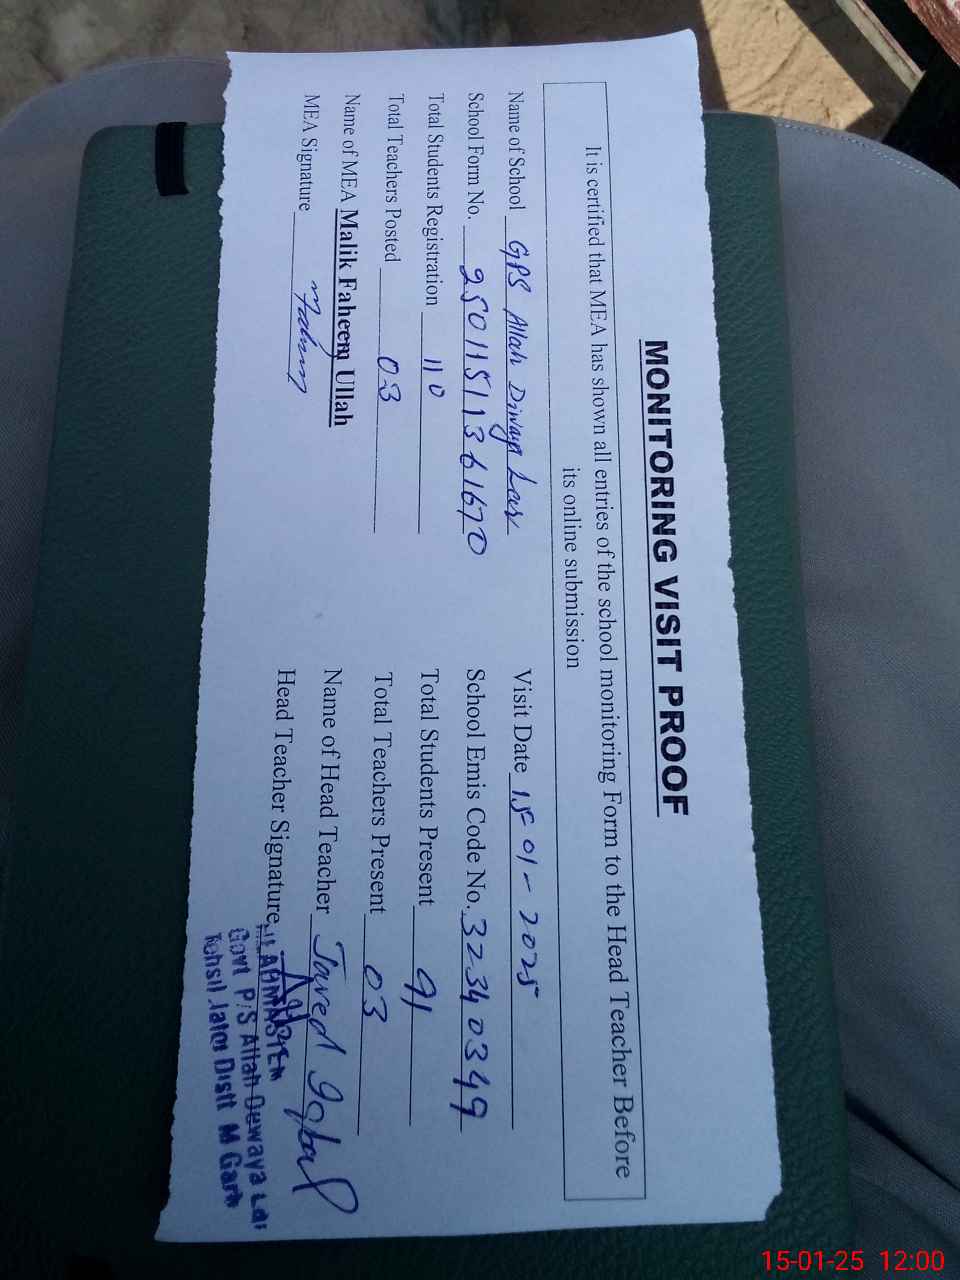 MONITORING VISIT PROOF
It is certified that MEA has shown all entries of the school monitoring Form to the Head Teacher Before
its online submission
Name of School GPS Allah Diwaya Laar
Visit Date 15-01-2025
School Form No. 25011511361670
School Emis Code No. 32340349
Total Students Registration 110
Total Students Present 91
Total Teachers Posted 03
Total Teachers Present 03
Name of MEA Malik Faheem Ullah
Name of Head Teacher Javed Iqbal
MEA Signature
Head Teacher Signature
Govt P/S Allah Dewaya Lar
Tehsil Jatoi Distt M Garh
15-01-25 12:00